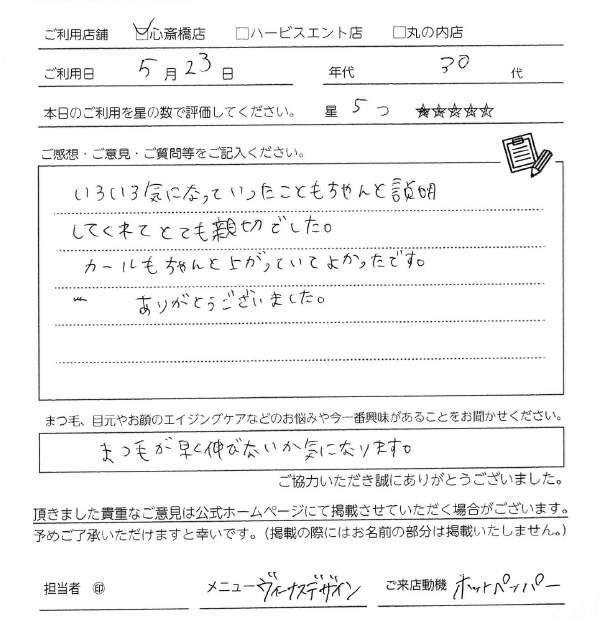 ご利用店舗 ☑心斎橋店 □ハービスエント店 □丸の内店
ご利用日 5月23日 年代 30代
本日のご利用を星の数で評価してください。 星 5つ ★★★★★
ご感想・ご意見・ご質問等をご記入ください。
いろいろ気になっていったこともちゃんと説明
してくれてとても親切でした。
カールもちゃんと上がっていてよかったです。
ありがとうございました。
まつ毛、目元やお顔のエイジングケアなどのお悩みや今一番興味があることをお聞かせください。
まつ毛が早く伸びないか気になります。
ご協力いただき誠にありがとうございました。
頂きました貴重なご意見は公式ホームページにて掲載させていただく場合がございます。
予めご了承いただけますと幸いです。（掲載の際にはお名前の部分は掲載いたしません。）
担当者 ㊞ メニュー ヴィーナスデザイン ご来店動機 ホットペッパー